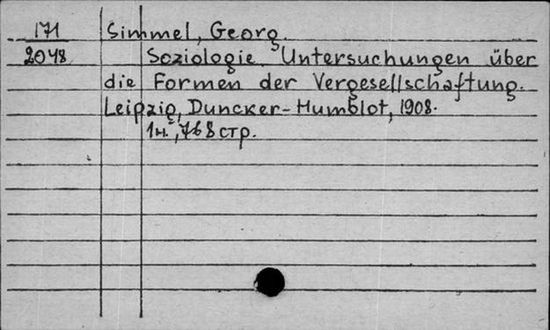 171 Simmel, Georg.
2048 Soziologie. Untersuchungen über
die Formen der Vergesellschaftung.
Leipzig, Duncker-Humblot, 1908.
1н., 768 стр.